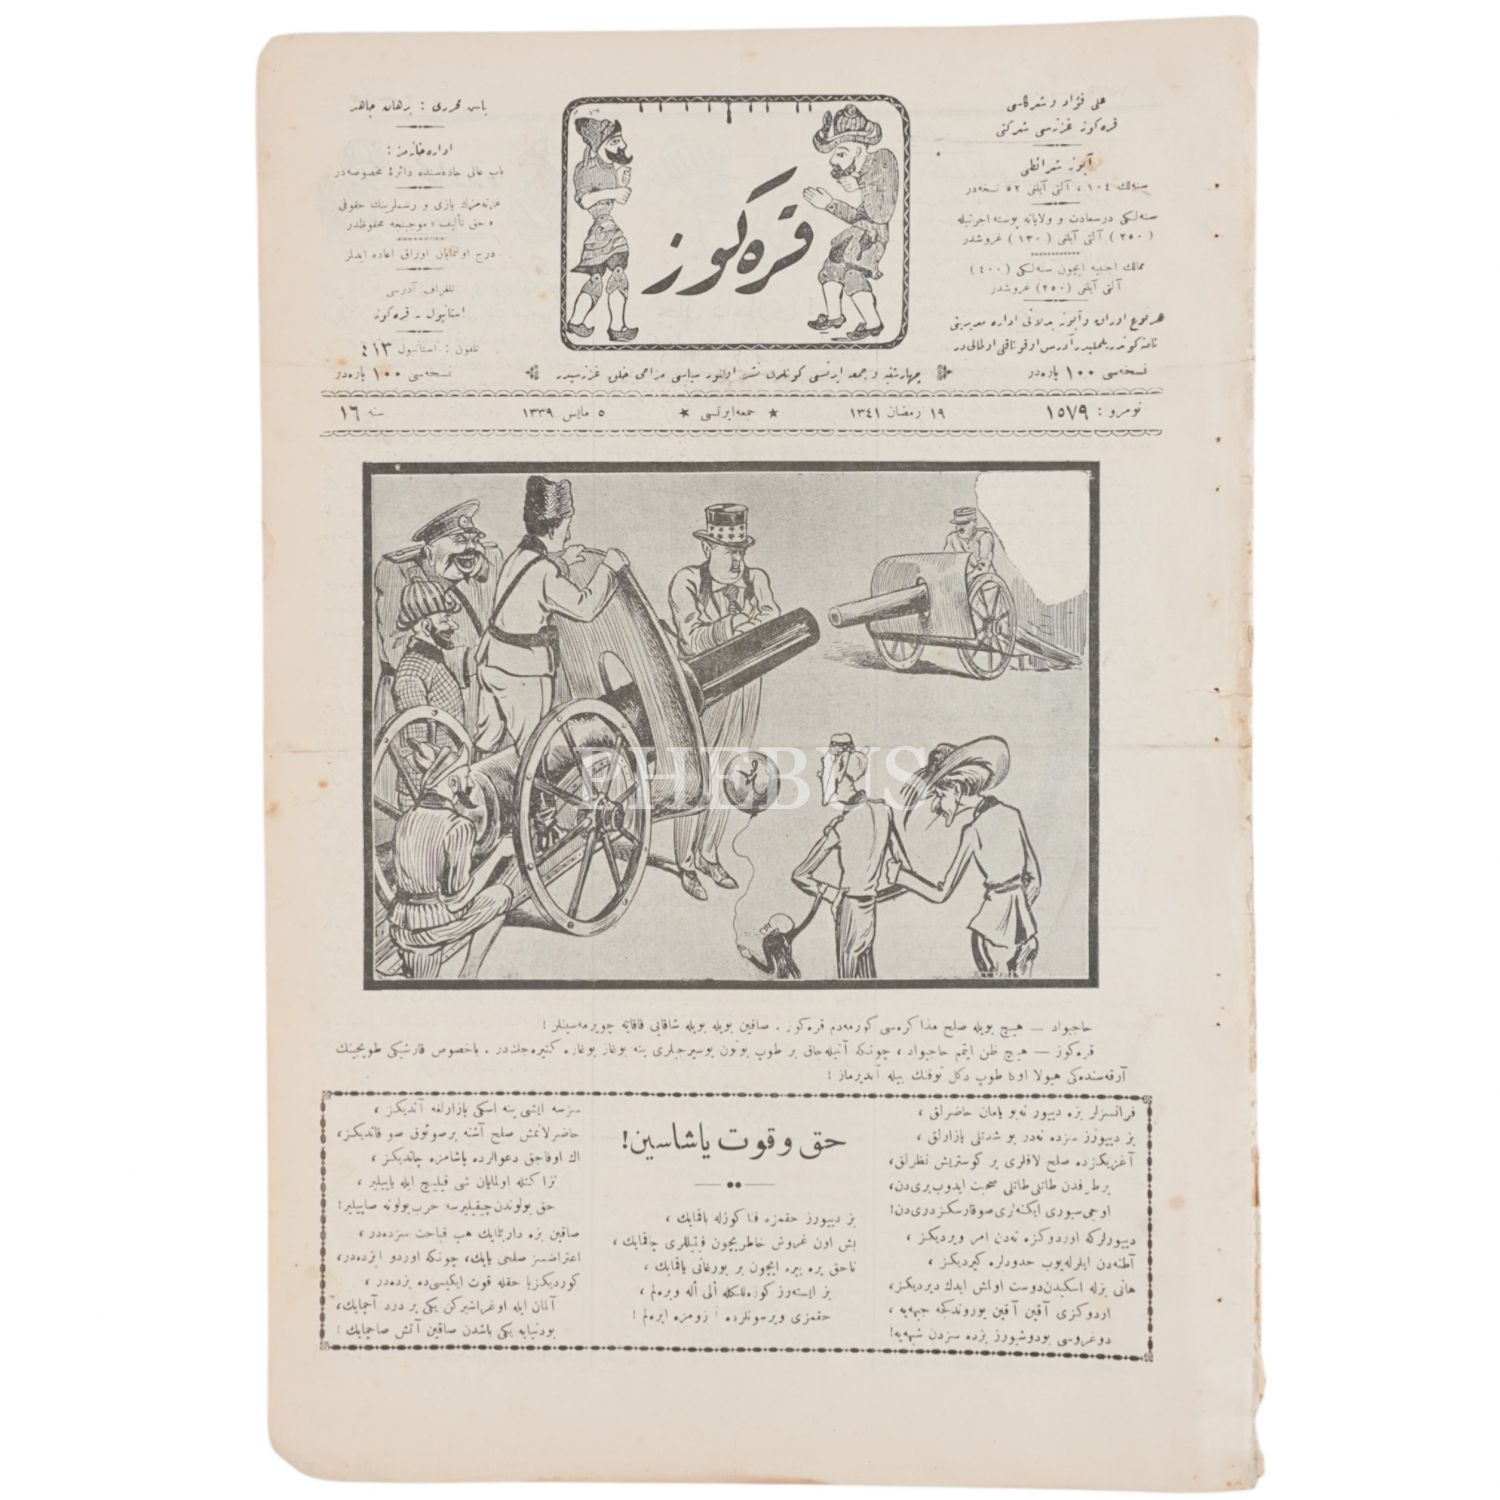 علی فؤاد و شرکاسی
قره کوز غزته سی شرکتی
آبونه شرائطی
سنه لك ١٠٤ ، آلتی آیلغی ٥٢ نسخه در
سنه لکی درسعادت و ولایاته پوسته اجرتیله
( ٢٥٠ ) آلتی آیلغی ( ١٣٠ ) غروشدر
ممالك اجنبیه ایچون سنه لکی ( ٤٠٠ )
آلتی آیلغی ( ٢٥٠ ) غروشدر
هر نوع اوراق و آبونه بدلاتی اداره مدیریتی
نسخه سی ١٠٠ پاره در
قره کوز
باش محرری : برهان جاهد
اداره خانه مز :
باب عالی جاده سنده دائرۀ مخصوصه در
غزته مزك یازی و رسملرینك حقوقی
« حق تألیف » موجبنجه محفوظدر
درج اولنمایان اوراق اعاده ایدلمز
تلغراف آدرسی
استانبول ـ قره کوز
تلفون : استانبول ٤١٣
نسخه سی ١٠٠ پاره در
چهارشنبه و جمعه ایرتسی کونلری نشر اولنور سیاسی مزاحی خلق غزته سیدر
نومرو : ١٥٧٩
١٩ رمضان ١٣٤١
★ جمعه ایرتسی ★
٥ مایس ١٣٣٩
سنه ١٦
PHEBUS
حاجیواد — هیچ بویله صلح مذاکره سی کورمه دم قره کوز . صاقین بویله بویله شاقایی قاقایه چویرمه سینلر !
قره کوز — هیچ ظن ایتمم حاجیواد ، چونکه آتیله جاق بر طوپ بوتون بوسیرجیلری ینه بوغاز بوغازه کتیره جك در . باخصوص قارشیکی طوپجینك
آرقه سنده کی هیولا اوکا طوپ دکل توفنك بیله آتدیرماز !
حق و قوت یاشاسین !
فرانسزلر بزه دییور نه بو یامان حاضرلق ،
بز دییورز سزده نه در بو شدتلی پازارلق ،
آغزیکزده صلح لافلری بر کوستریش نظرلق ،
بر طرفدن طاتلی طاتلی صحبت ایدوب بری دن ،
اوجی سیوری ایکنه لری صوقارسکز دری دن !
دییورلرکه اوردوکزه نه دن امر ویردیکز ،
آطنه دن ایلرله یوب حدودلره کیردیکز ،
هانی بزله اسکیدن دوست اولش ایدك دیردیکز ،
اردوکزی آقین آقین یوروندکجه جبهه یه ،
دوغروسی بودوشیورز بزده سزدن شبهه یه !
بز دییورز حقمزه فنا کوزله باقمایك ،
بش اون غروش خاطریچون فیتیللری چاقمایك ،
ناحق یره پیره ایچون بر یورغانی یاقمایك ،
بز ایسته رز کوزه للکله ألی أله ویره لم ،
حقمزی ویرسونلرده آرزومزه ایره لم !
سزسه ایشی ینه اسکی پازارلغه آتدیکز ،
حاضرلانمش صلح آشنه بر صوغوق صو قاتدیکز ،
اك اوفاجق دعوالرده باشامزه چاتدیکز ،
نزاکتله اولمایان شی قیلیج ایله یاپیلیر ،
حق یولوندن چیقیلیرسه حرب یولونه صاپیلیر !
صاقین بزه داریلمایك هپ قباحت سزده در ،
اعتراضسز صلحی یاپك ، چونکه اوردو ایزده در ،
کوردیکز یا حقله قوت ایکیسی ده بزده در ،
آلمان ایله اوغراشیرکن یکی بر درد آچمایك ،
بودنیایه یکی باشدن صاقین آتش صاچمایك !